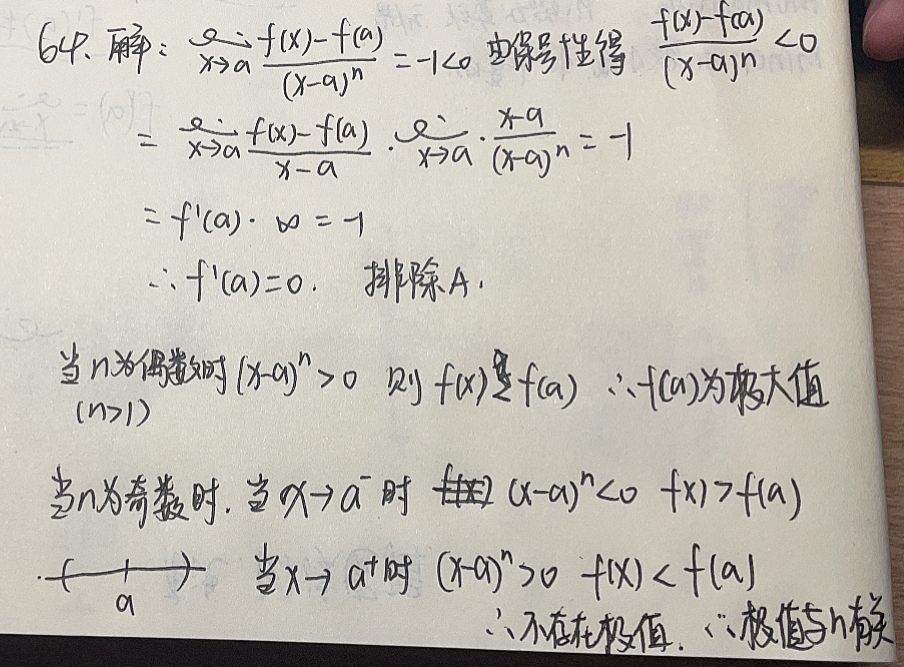 64. 解: lim x→a (f(x)-f(a))/(x-a)^n = -1<0 由保号性得 (f(x)-f(a))/(x-a)^n <0
= lim x→a (f(x)-f(a))/(x-a) · lim x→a · (x-a)/(x-a)^n = -1
= f'(a) · ∞ = -1
∴ f'(a)=0. 排除A.
当n为偶数时(x-a)^n>0 则 f(x) f(a) ∴f(a)为极大值
(n>1)
当n为奇数时. 当x→a^-时 (x-a)^n<0 f(x)>f(a)
a 当x→a^+时 (x-a)^n>0 f(x)<f(a)
∴不存在极值. ∴极值与n有关